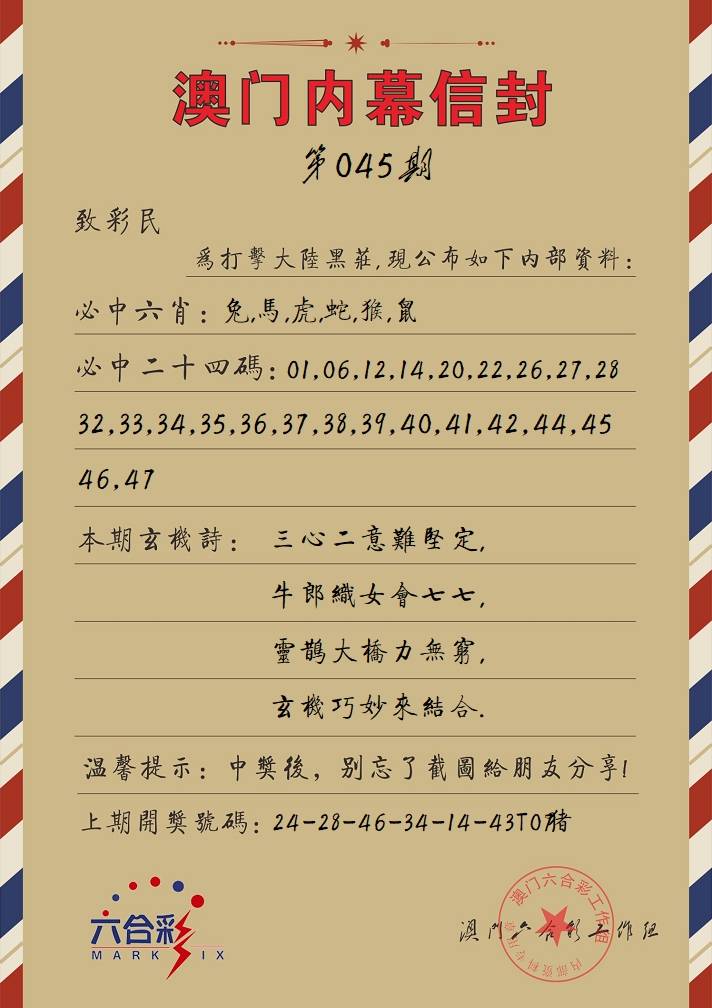 澳门内幕信封
第045期
致彩民
為打擊大陸黑莊,現公布如下内部資料:
必中六肖:兔,馬,虎,蛇,猴,鼠
必中二十四碼:01,06,12,14,20,22,26,27,28
32,33,34,35,36,37,38,39,40,41,42,44,45
46,47
本期玄機詩: 三心二意難堅定,
牛郎織女會七七,
靈鵲大橋力無窮,
玄機巧妙來結合.
温馨提示:中獎後,别忘了截圖給朋友分享!
上期開獎號碼:24-28-46-34-14-43T07猪
六合彩
MARK SIX
澳门六合彩工作组
澳门六合彩工作组
内部资料专用章